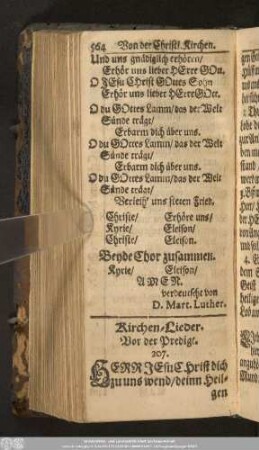 564 Von der Christl. Kirchen.
Und uns gnädiglich erhören/
Erhör uns lieber HErre GOtt.
O JESu Christ GOttes Sohn
Erhör uns lieber HErr GOtt.
O du GOttes Lamm/ das der Welt
Sünde trägt/
Erbarm dich über uns.
O du GOttes Lamm/ das der Welt
Sünde trägt/
Erbarm dich über uns.
O du GOttes Lamm/ das der Welt
Sünde trägt/
Verleih' uns steten Fried.
Christe/ Erhöre uns/
Kyrie/ Eleison/
Christe/ Eleison.
Beyde Chor zusammen.
Kyrie/ Eleison/
AMEN.
verdeutscht von
D. Mart. Luther.
Kirchen-Lieder.
Vor der Predigt.
207.
HERR JESu CHrist dich
zu uns wend/ deinn Heil-
gen